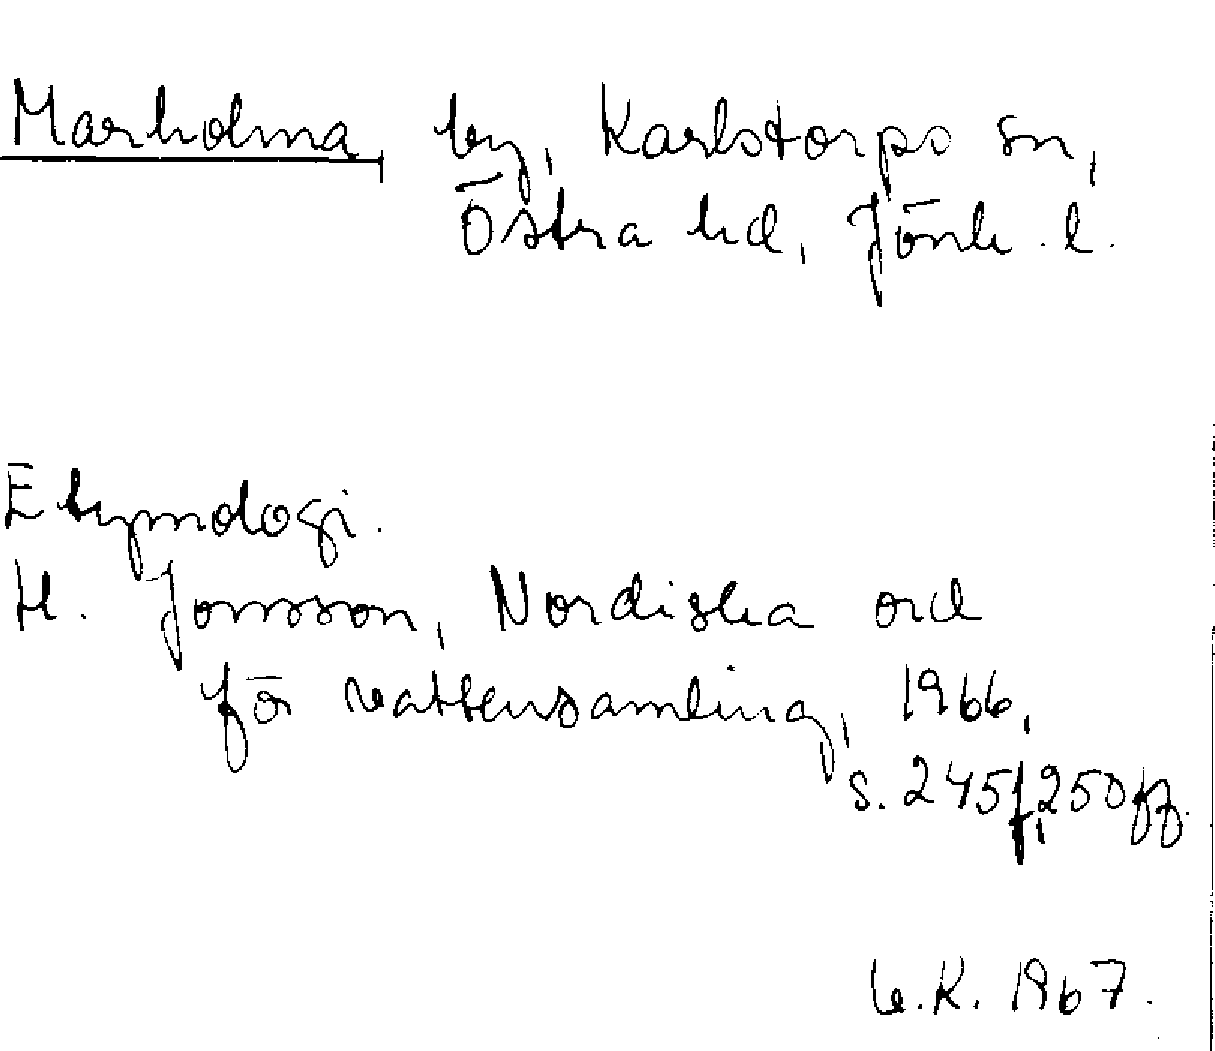 Marholma, by, Karlstorps sn,
Östra hd, Jönk. l.
Etymologi.
H. Jonsson, Nordiska ord
för vattensamling, 1966,
s. 245f, 250ff.
K. 1967.